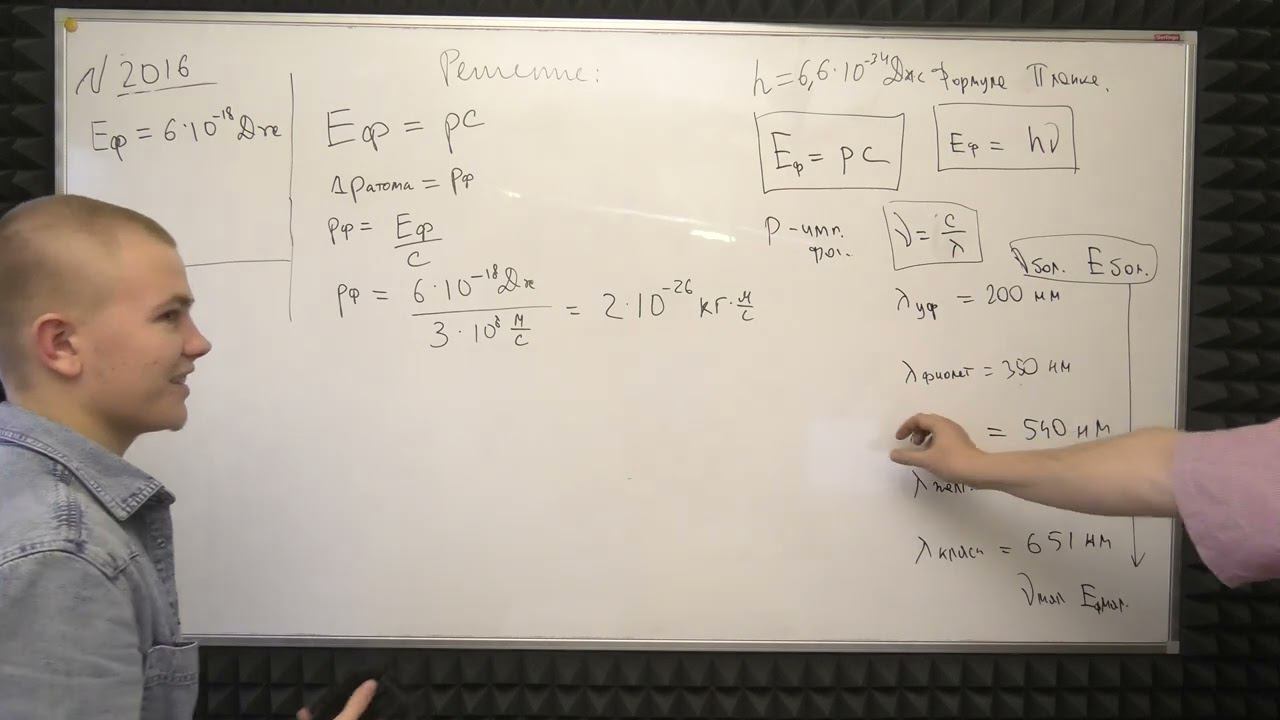 N 2016
Eф = 6·10⁻¹⁸ Дж
Решение:
Eф = pc
Δpатома = pф
pф = Eф/c
pф = 6·10⁻¹⁸ Дж / 3·10⁸ м/с = 2·10⁻²⁶ кг·м/с
h = 6,6·10⁻³⁴ Дж с Формула Планка.
Eф = pc
Eф = hν
p - имп. фот.
ν = c/λ
νбол. Eбол.
λуф = 200 нм
λфиолет = 350 нм
= 540 нм
λжелт.
λкрасн = 651 нм
νмал Eфмал.